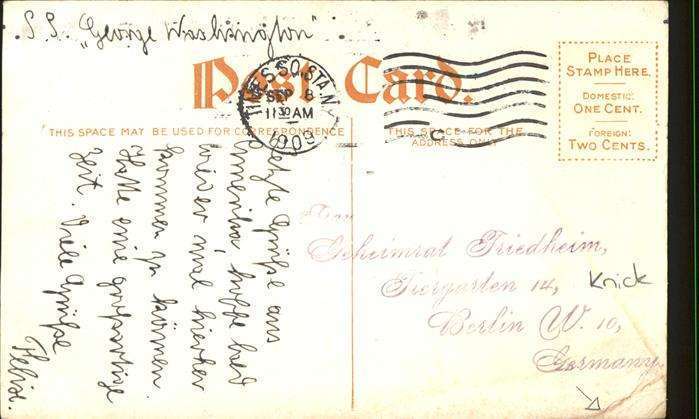 S.S. „George Washington"
Post Card.
TIMES SQ. STA. N.
SEP 8
11 30 AM
1909
C
PLACE
STAMP HERE.
DOMESTIC:
ONE CENT.
FOREIGN:
TWO CENTS.
THIS SPACE MAY BE USED FOR CORRESPONDENCE
THIS SPACE FOR THE
ADDRESS ONLY.
Letzte Grüße aus
Amerika, hoffe bald
wieder mal hierher
kommen zu können.
Hatte eine großartige
Zeit. Viele Grüße
Felix
Geheimrat Friedheim,
Tiergarten 14,
Berlin W. 10,
Germany.
Knick